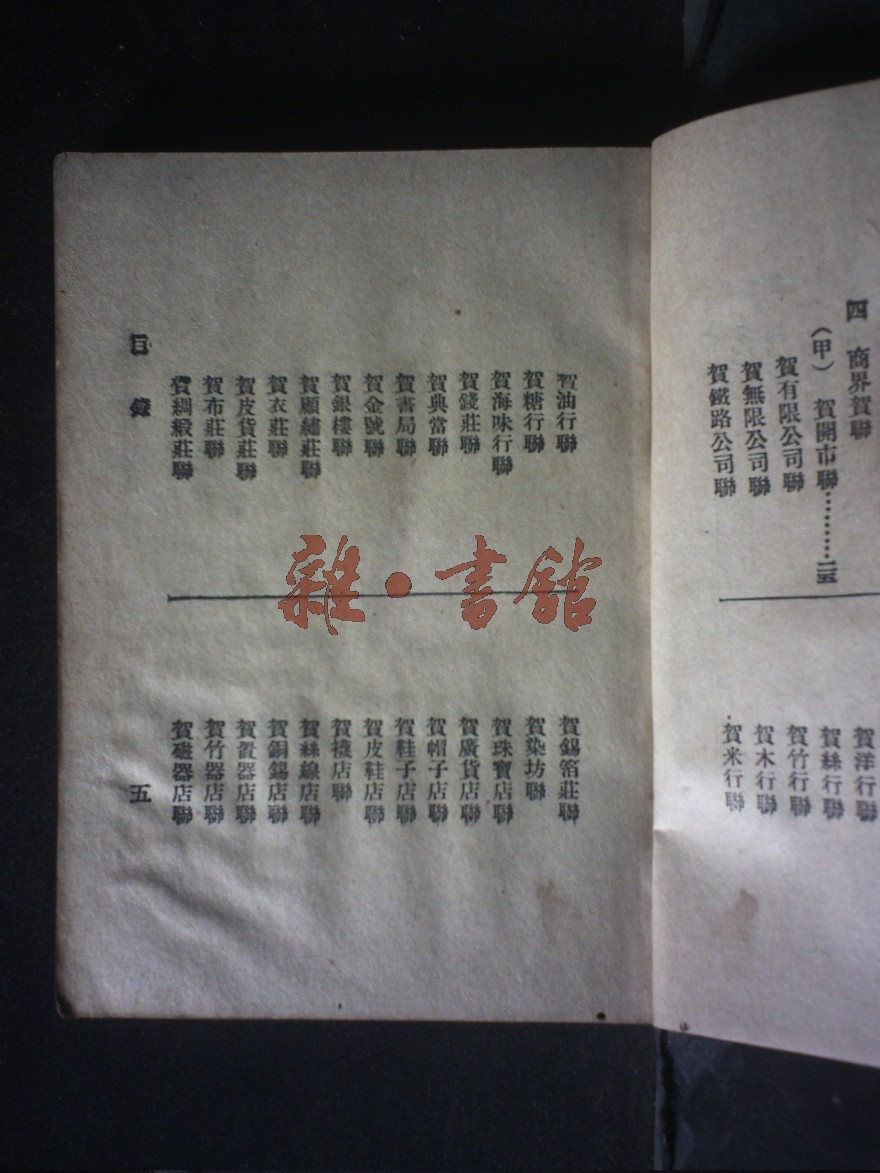 四　商界賀聯
（甲）　賀開市聯………二五
賀有限公司聯
賀無限公司聯
賀鐵路公司聯
賀洋行聯
賀絲行聯
賀竹行聯
賀木行聯
賀米行聯
賀油行聯
賀糖行聯
賀海味行聯
賀錢莊聯
賀典當聯
賀書局聯
賀金號聯
賀銀樓聯
賀顧繡莊聯
賀衣莊聯
賀皮貨莊聯
賀布莊聯
賀綢緞莊聯
賀錫箔莊聯
賀染坊聯
賀珠寶店聯
賀廣貨店聯
賀帽子店聯
賀鞋子店聯
賀皮鞋店聯
賀襪店聯
賀絲線店聯
賀銅錫店聯
賀置器店聯
賀竹器店聯
賀磁器店聯
目錄
五
雜・書館